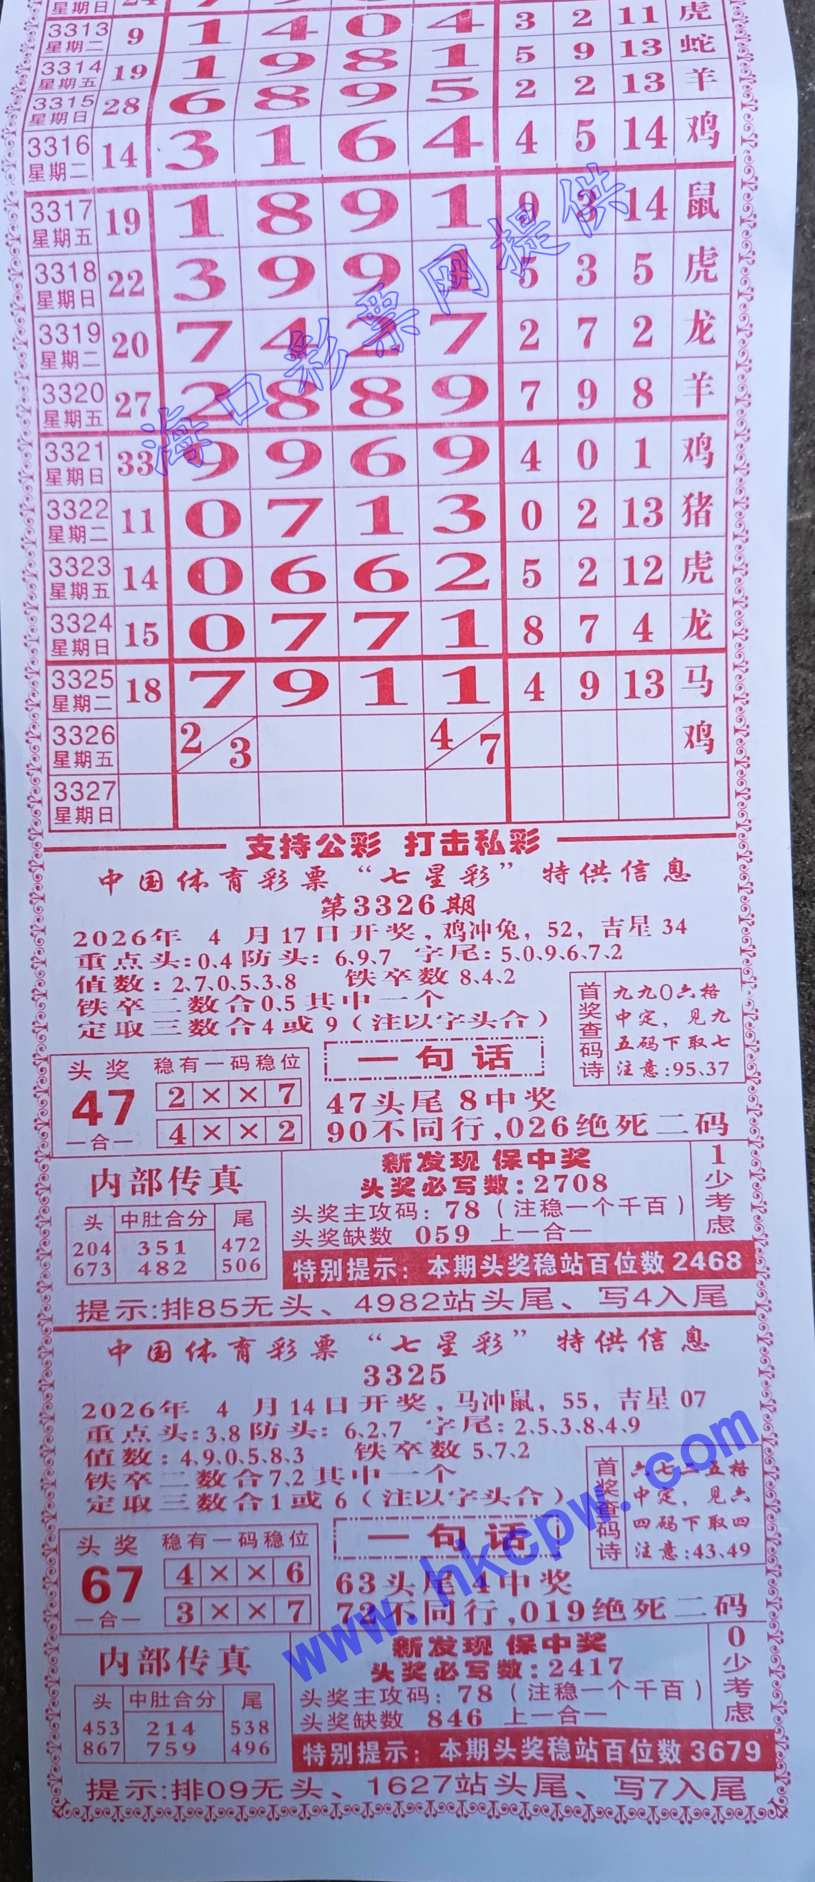 星期日 24
3313 星期二 9 1 4 0 4 3 2 11 虎
3314 星期五 19 1 9 8 1 5 9 13 蛇
3315 星期日 28 6 8 9 5 2 2 13 羊
3316 星期二 14 3 1 6 4 4 5 14 鸡
3317 星期五 19 1 8 9 1 0 3 14 鼠
3318 星期日 22 3 9 9 1 5 3 5 虎
3319 星期二 20 7 4 2 7 2 7 2 龙
3320 星期五 27 2 8 8 9 7 9 8 羊
3321 星期日 33 9 9 6 9 4 0 1 鸡
3322 星期二 11 0 7 1 3 0 2 13 猪
3323 星期五 14 0 6 6 2 5 2 12 虎
3324 星期日 15 0 7 7 1 8 7 4 龙
3325 星期二 18 7 9 1 1 4 9 13 马
3326 星期五 2/3 4/7 鸡
3327 星期日
海口彩票网提供
支持公彩 打击私彩
中国体育彩票“七星彩”特供信息
第3326期
2026年 4 月17日开奖,鸡冲兔,52,吉星34
重点头:0、4 防头:6、9、7 字尾:5、0、9、6、7、2
值数:2、7、0、5、3、8 铁卒数8、4、2
铁卒二数合0、5其中一个
定取三数合4或9(注以字头合)
首奖查码诗
九九〇六格
中定,见九
五码下取七
注意:95、37
头奖 47 一合一
稳有一码稳位
2 × × 7
4 × × 2
一句话
47头尾8中奖
90不同行,026绝死二码
内部传真
头 中肚合分 尾
204 351 472
673 482 506
新发现 保中奖
头奖必写数:2708
头奖主攻码:78(注稳一个千百)
头奖缺数 059 上一合一
1少考虑
特别提示:本期头奖稳站百位数2468
提示:排85无头、4982站头尾、写4入尾
中国体育彩票“七星彩”特供信息
3325
2026年 4 月14日开奖,马冲鼠,55,吉星07
重点头:3、8 防头:6、2、7 字尾:2、5、3、8、4、9
值数:4、9、0、5、8、3 铁卒数5、7、2
铁卒二数合7、2其中一个
定取三数合1或6(注以字头合)
首奖查码诗
六七二五格
中定,见六
四码下取四
注意:43、49
头奖 67 一合一
稳有一码稳位
4 × × 6
3 × × 7
一句话
63头尾4中奖
72不同行,019绝死二码
www.hkcpw.com
内部传真
头 中肚合分 尾
453 214 538
867 759 496
新发现 保中奖
头奖必写数:2417
头奖主攻码:78(注稳一个千百)
头奖缺数 846 上一合一
0少考虑
特别提示:本期头奖稳站百位数3679
提示:排09无头、1627站头尾、写7入尾